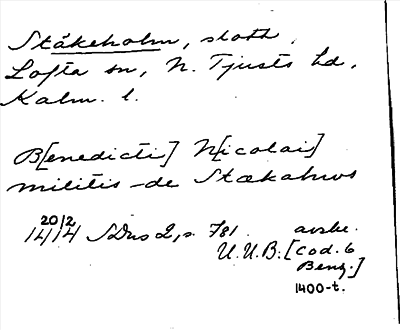 Stäkeholm, slott,
Lofta sn, N. Tjusts hd,
Kalm. l.
B[enedicti] N[icolai]
militis de Stækahws
20/2
1414 SDns 2, s. 781 avskr.
U.U.B. [Cod. 6
Benz.]
1400-t.